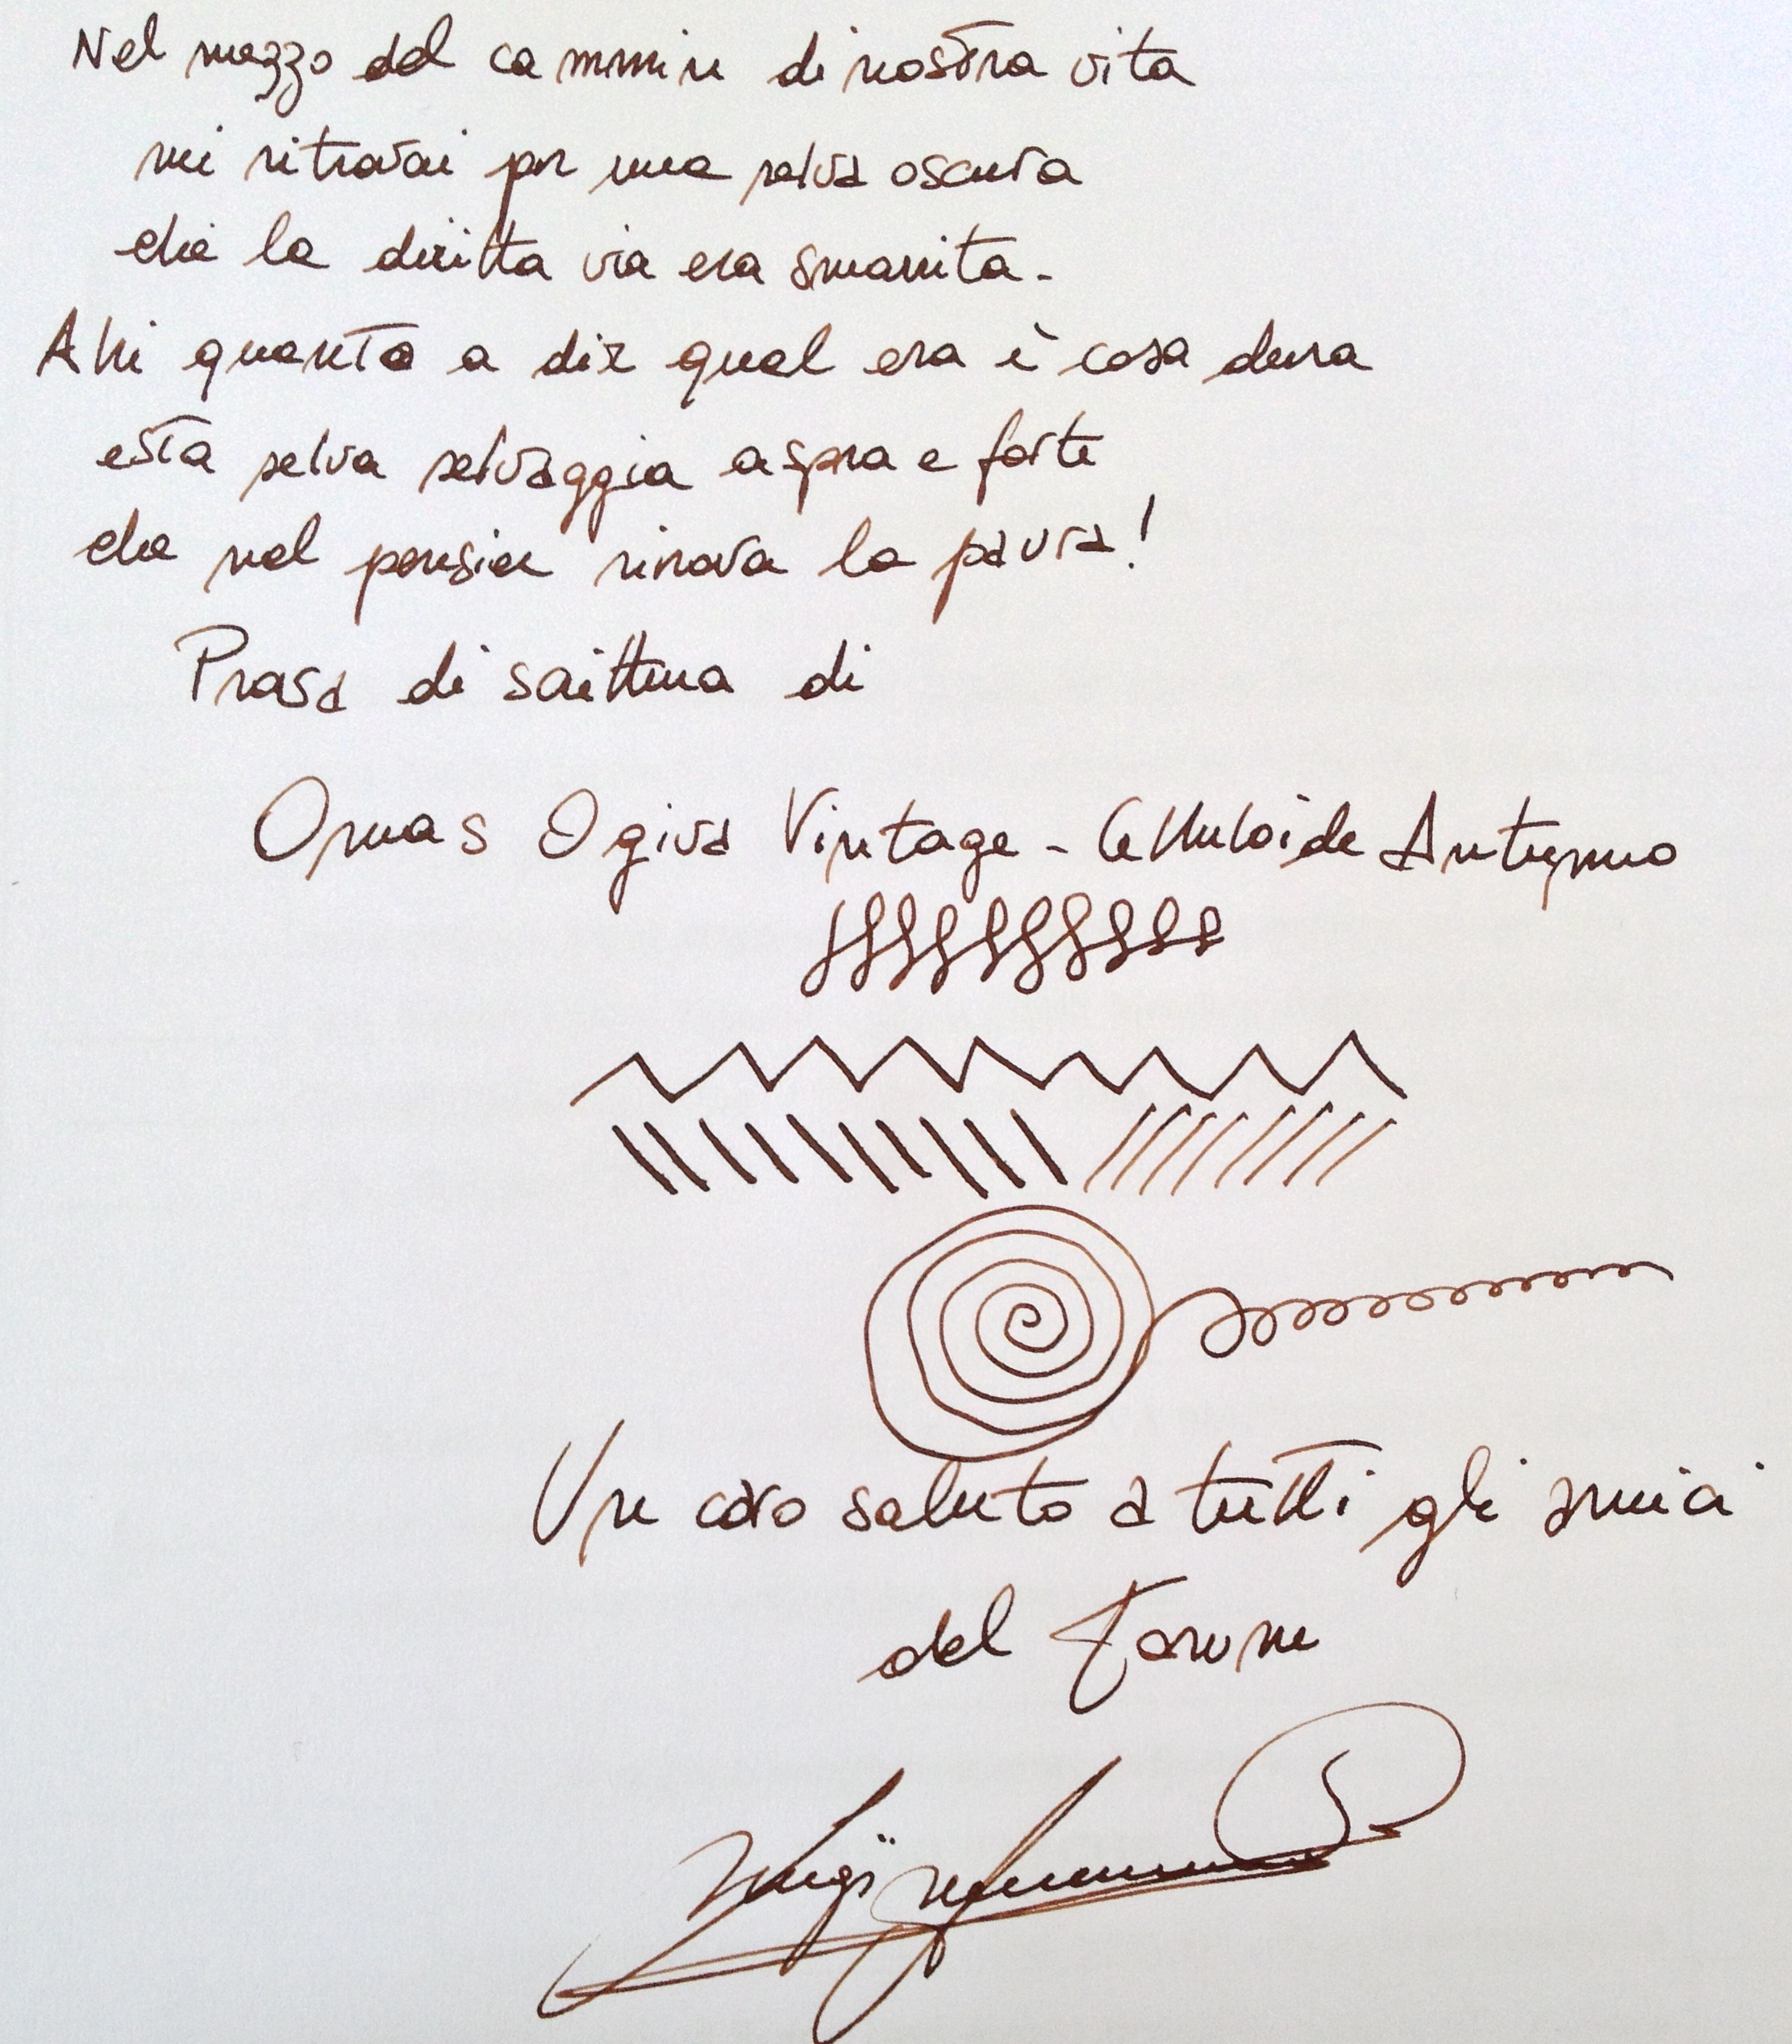 Nel mezzo del cammin di nostra vita
mi ritrovai per una selva oscura
ché la diritta via era smarrita.
Ahi quanto a dir qual era è cosa dura
esta selva selvaggia aspra e forte
che nel pensier rinova la paura!
Prova di scrittura di
Omas Ogiva Vintage - Celluloide Autunno
Un caro saluto a tutti gli amici
del Forum
Luigi